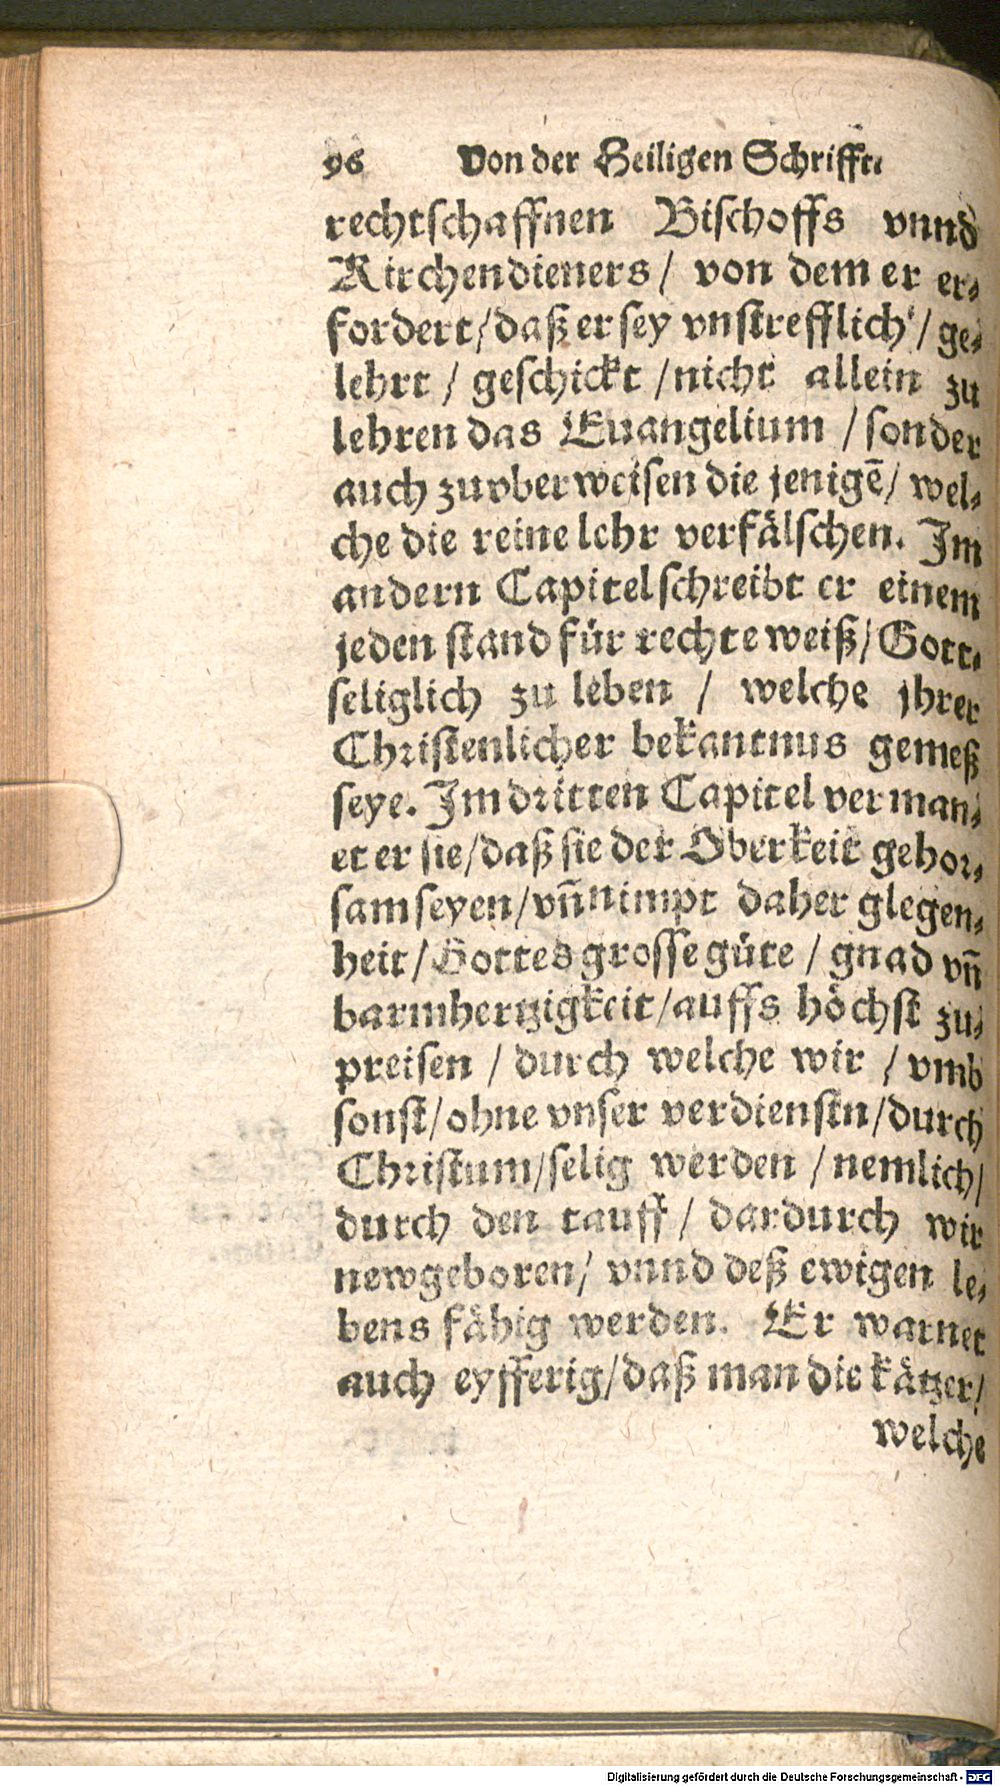 96 Von der Heiligen Schrifft.
rechtschaffnen Bischoffs vnnd
Kirchendieners / von dem er er-
fordert / daß er sey vnstrefflich / ge-
lehrt / geschickt / nicht allein zu
lehren das Euangelium / sonder
auch zuvberweisen die jenigē / wel-
che die reine lehr verfälschen. Im
andern Capitel schreibt er einem
jeden stand für rechte weiß / Gott-
seliglich zu leben / welche jhrer
Christenlicher bekantnus gemeß
seye. Im dritten Capitel verman-
et er sie / daß sie der Oberkeit gehor-
sam seyen / vñ nimpt daher glegen-
heit / Gottes grosse güte / gnad vñ
barmhertzigkeit / auffs höchst zu-
preisen / durch welche wir / vmb
sonst / ohne vnser verdienstn / durch
Christum / selig werden / nemlich /
durch den tauff / dardurch wir
newgeboren / vnnd deß ewigen le-
bens fähig werden. Er warnet
auch eyfferig / daß man die kätzer /
welche
Digitalisierung gefördert durch die Deutsche Forschungsgemeinschaft - DFG